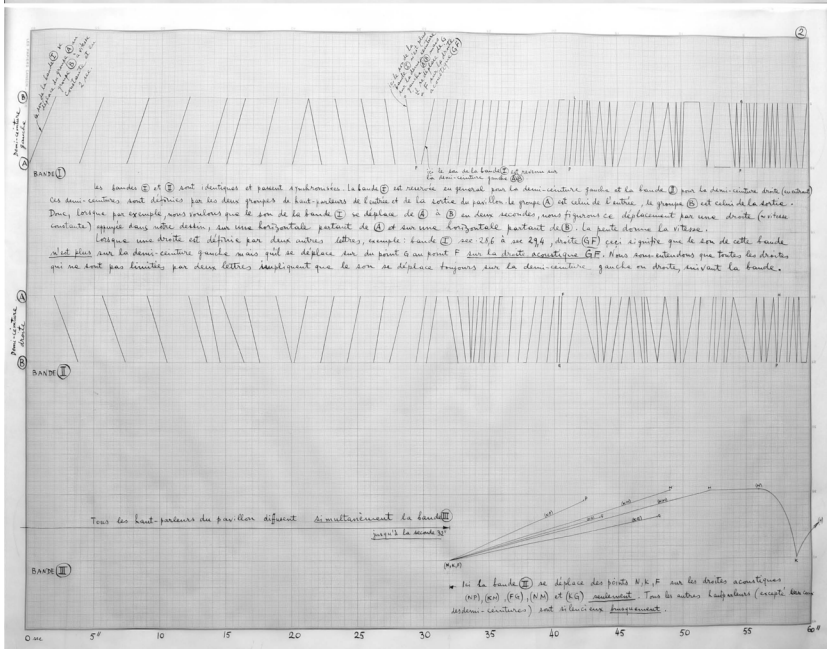 2
le son de la bande I se
déplace du groupe A au
groupe B à vitesse
constante et en
2 sec
ici le son de la
bande I n'est plus
sur la demi-ceinture
gauche mais
il se déplace de G
à F sur la droite
acoustique (GF)
B
Demi-ceinture
gauche
A
F
ici le son de la bande I est revenu sur
la demi-ceinture gauche
BANDE I
Les bandes I et II sont identiques et passent synchronisées. La bande I est réservée en général pour la demi-ceinture gauche et la bande II pour la demi-ceinture droite
Ces demi-ceintures sont définies par les deux groupes de haut-parleurs de l'entrée et de la sortie du pavillon. le groupe A est celui de l'entrée, le groupe B est celui de la sortie.
Donc, lorsque par exemple, nous voulons que le son de la bande I se déplace de A à B en deux secondes, nous figurons ce déplacement par une droite (vitesse
constante) appuyée dans notre dessin, sur une horizontale partant de A et sur une horizontale partant de B. La pente donne la vitesse.
Lorsque une droite est définie par deux autres lettres, exemple: bande I sec. 28,6 à sec 29,4, droite (GF) ceci signifie que le son de cette bande
n'est plus sur la demi-ceinture gauche mais qu'il se déplace sur du point G au point F sur la droite acoustique GF. Nous sous-entendons que toutes les droites
qui ne sont pas limitées par deux lettres impliquent que le son se déplace toujours sur la demi-ceinture, gauche ou droite, suivant la bande.
A
Demi-ceinture
droite
B
BANDE II
Tous les haut-parleurs du pavillon diffusent simultanément la bande III
jusqu'à la seconde 32"
(N,K,F)
BANDE III
Ici la bande III se déplace des points N, K, F sur les droites acoustiques
(NF), (KN), (FG), (NM) et (KG) seulement. Tous les autres hautparleurs (excepté
les demi-ceintures) sont silencieux brusquement.
0 sec 5" 10 15 20 25 30 32 35 40 45 50 55 60"